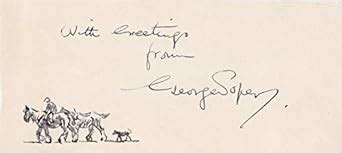 With Greetings
from
George Soper.